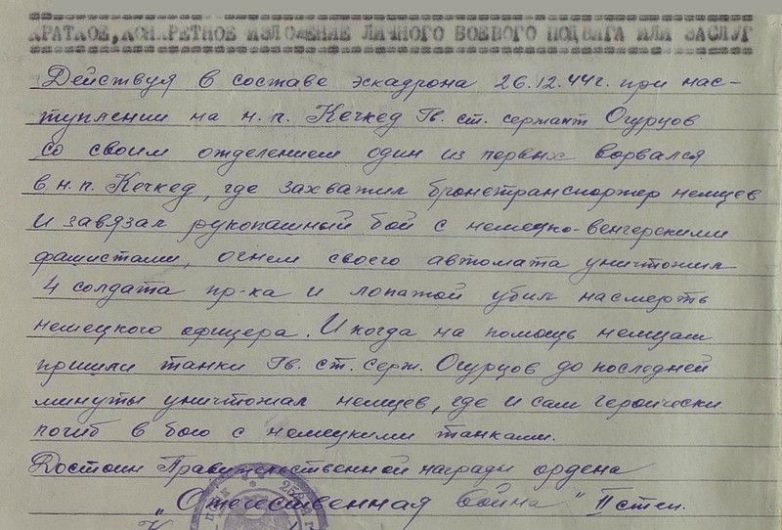 КРАТКОЕ, КОНКРЕТНОЕ ИЗЛОЖЕНИЕ ЛИЧНОГО БОЕВОГО ПОДВИГА ИЛИ ЗАСЛУГ
Действуя в составе эскадрона 26.12.44г. при нас-
туплении на н.п. Кечкед Гв. ст. сержант Огурцов
со своим отделением один из первых ворвался
в н.п. Кечкед, где захватил бронетранспортер немцев
и завязал рукопашный бой с немецко-венгерскими
фашистами, огнем своего автомата уничтожил
4 солдата пр-ка и лопатой убил насмерть
немецкого офицера. И когда на помощь немцам
пришли танки Гв. ст. серж. Огурцов до последней
минуты уничтожал немцев, где и сам героически
погиб в бою с немецкими танками.
Достоин Правительственной награды ордена
"Отечественная война" II степ.